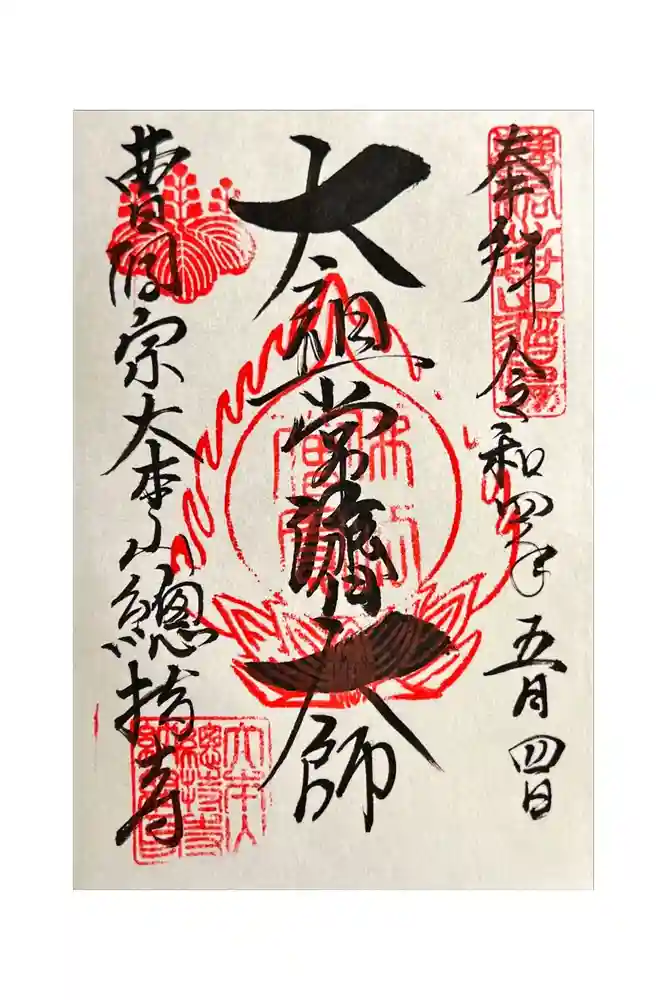 奉拝 令和四年五月四日
太祖常濟大師
曹洞宗大本山總持寺
大本山
總持寺